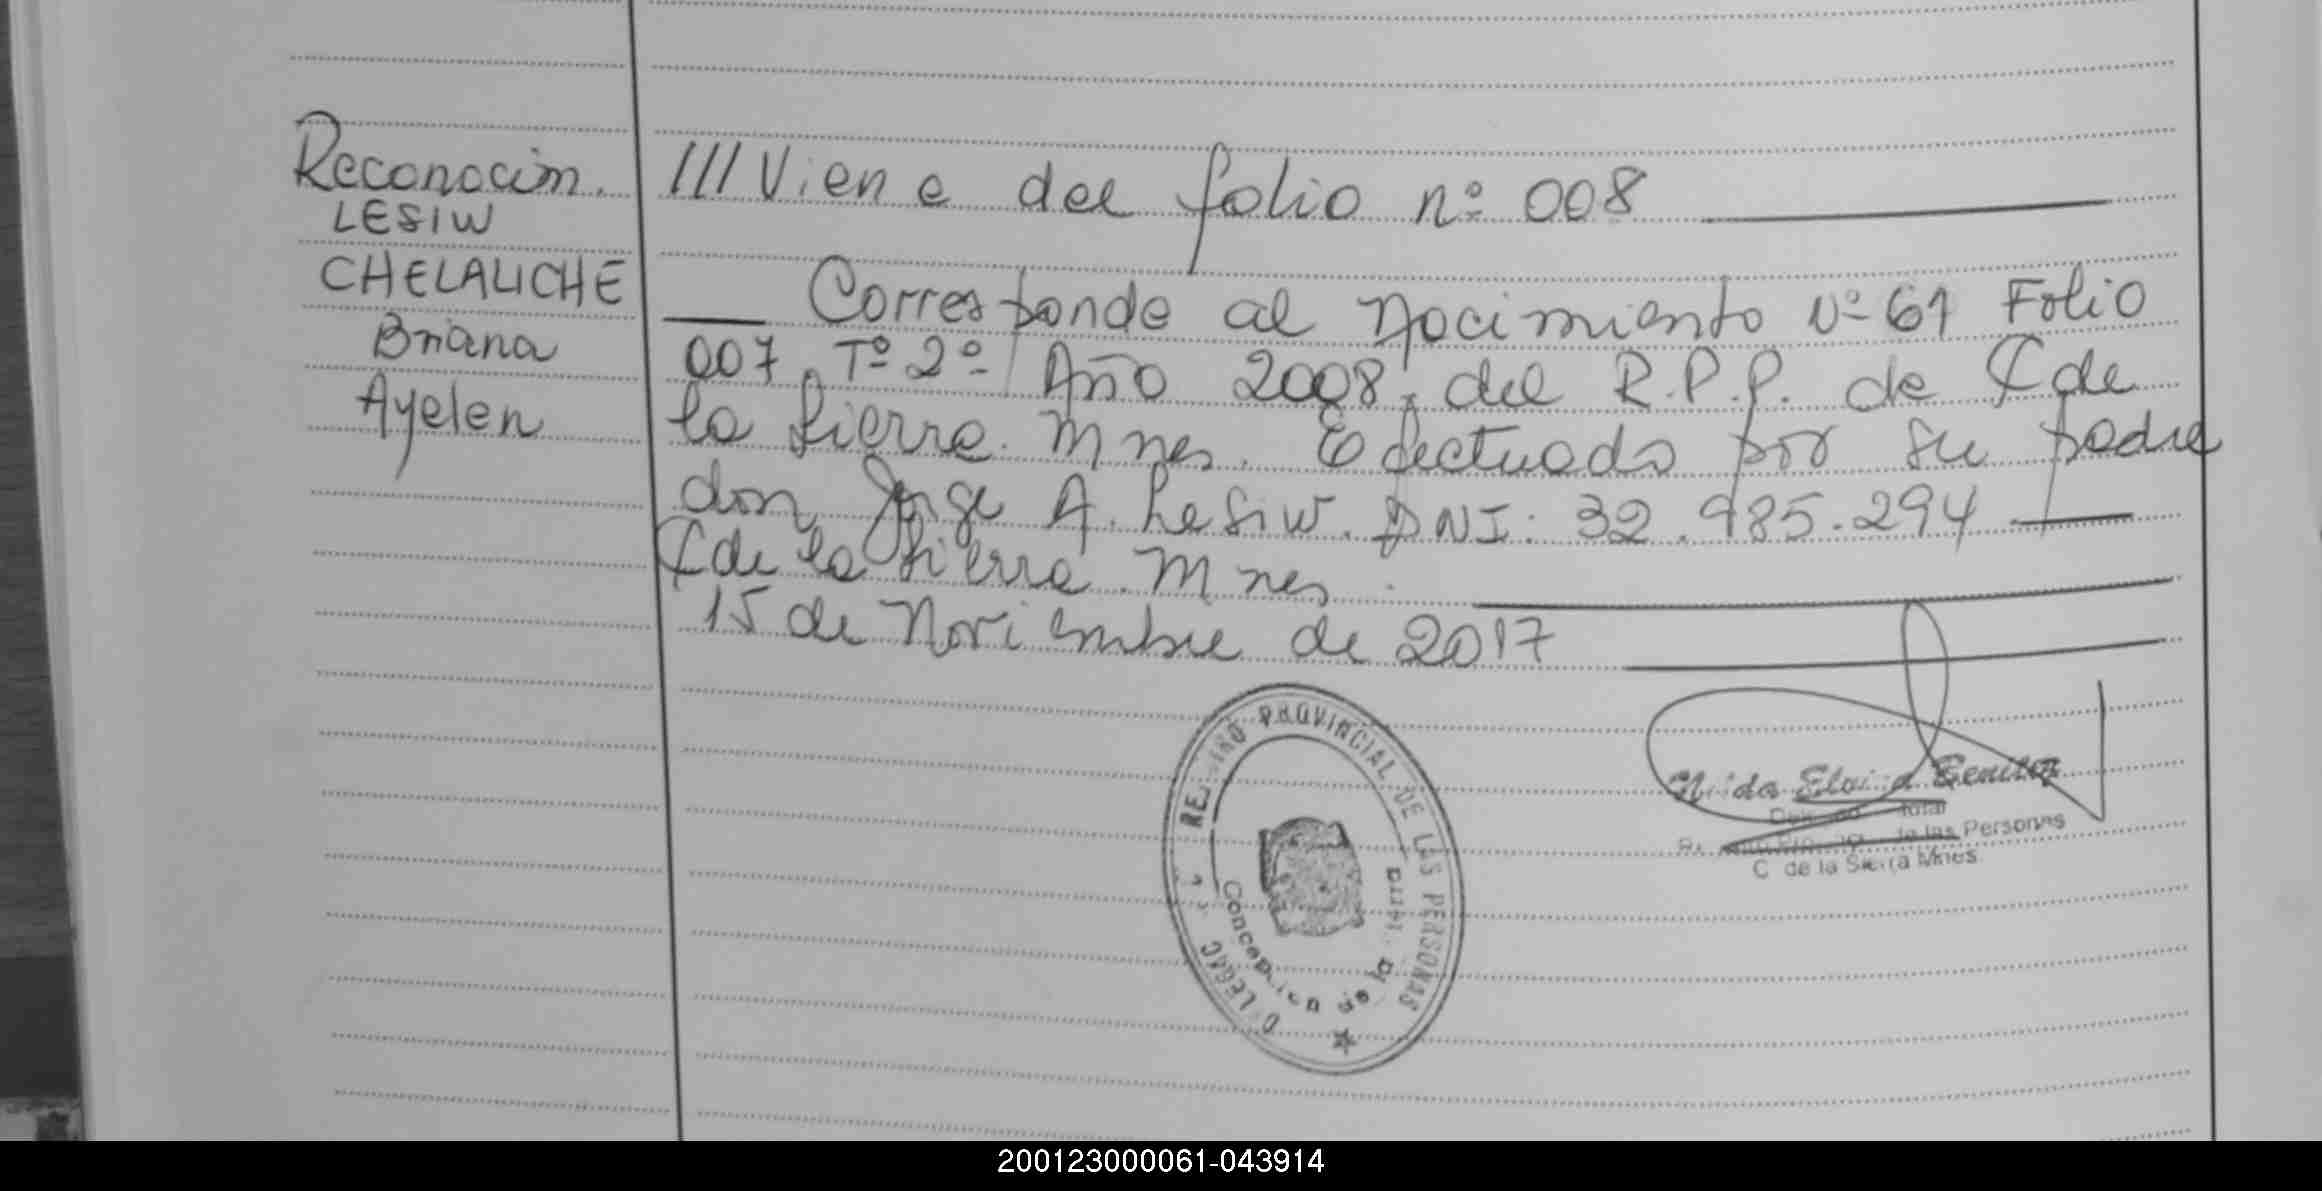 Reconocim.
LESIW
CHELAUCHE
Briana
Ayelen
///Viene del folio nº 008
Corresponde al Nacimiento Nº 61 Folio
007 Tº 2º Año 2008, del R.P.P. de C de
la Sierra. Mnes. Efectuado por su padre
don Jorge A. Lesiw. DNI: 32.985.294
C de la Sierra. Mnes.
15 de Noviembre de 2017
REGISTRO PROVINCIAL DE LAS PERSONAS
Concepción de la Sierra
Eloisa Benitez
de las Personas
C de la Sierra Mnes
200123000061-043914